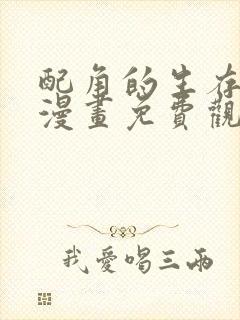 配角的生存
漫畫免費觀
我愛喝三兩